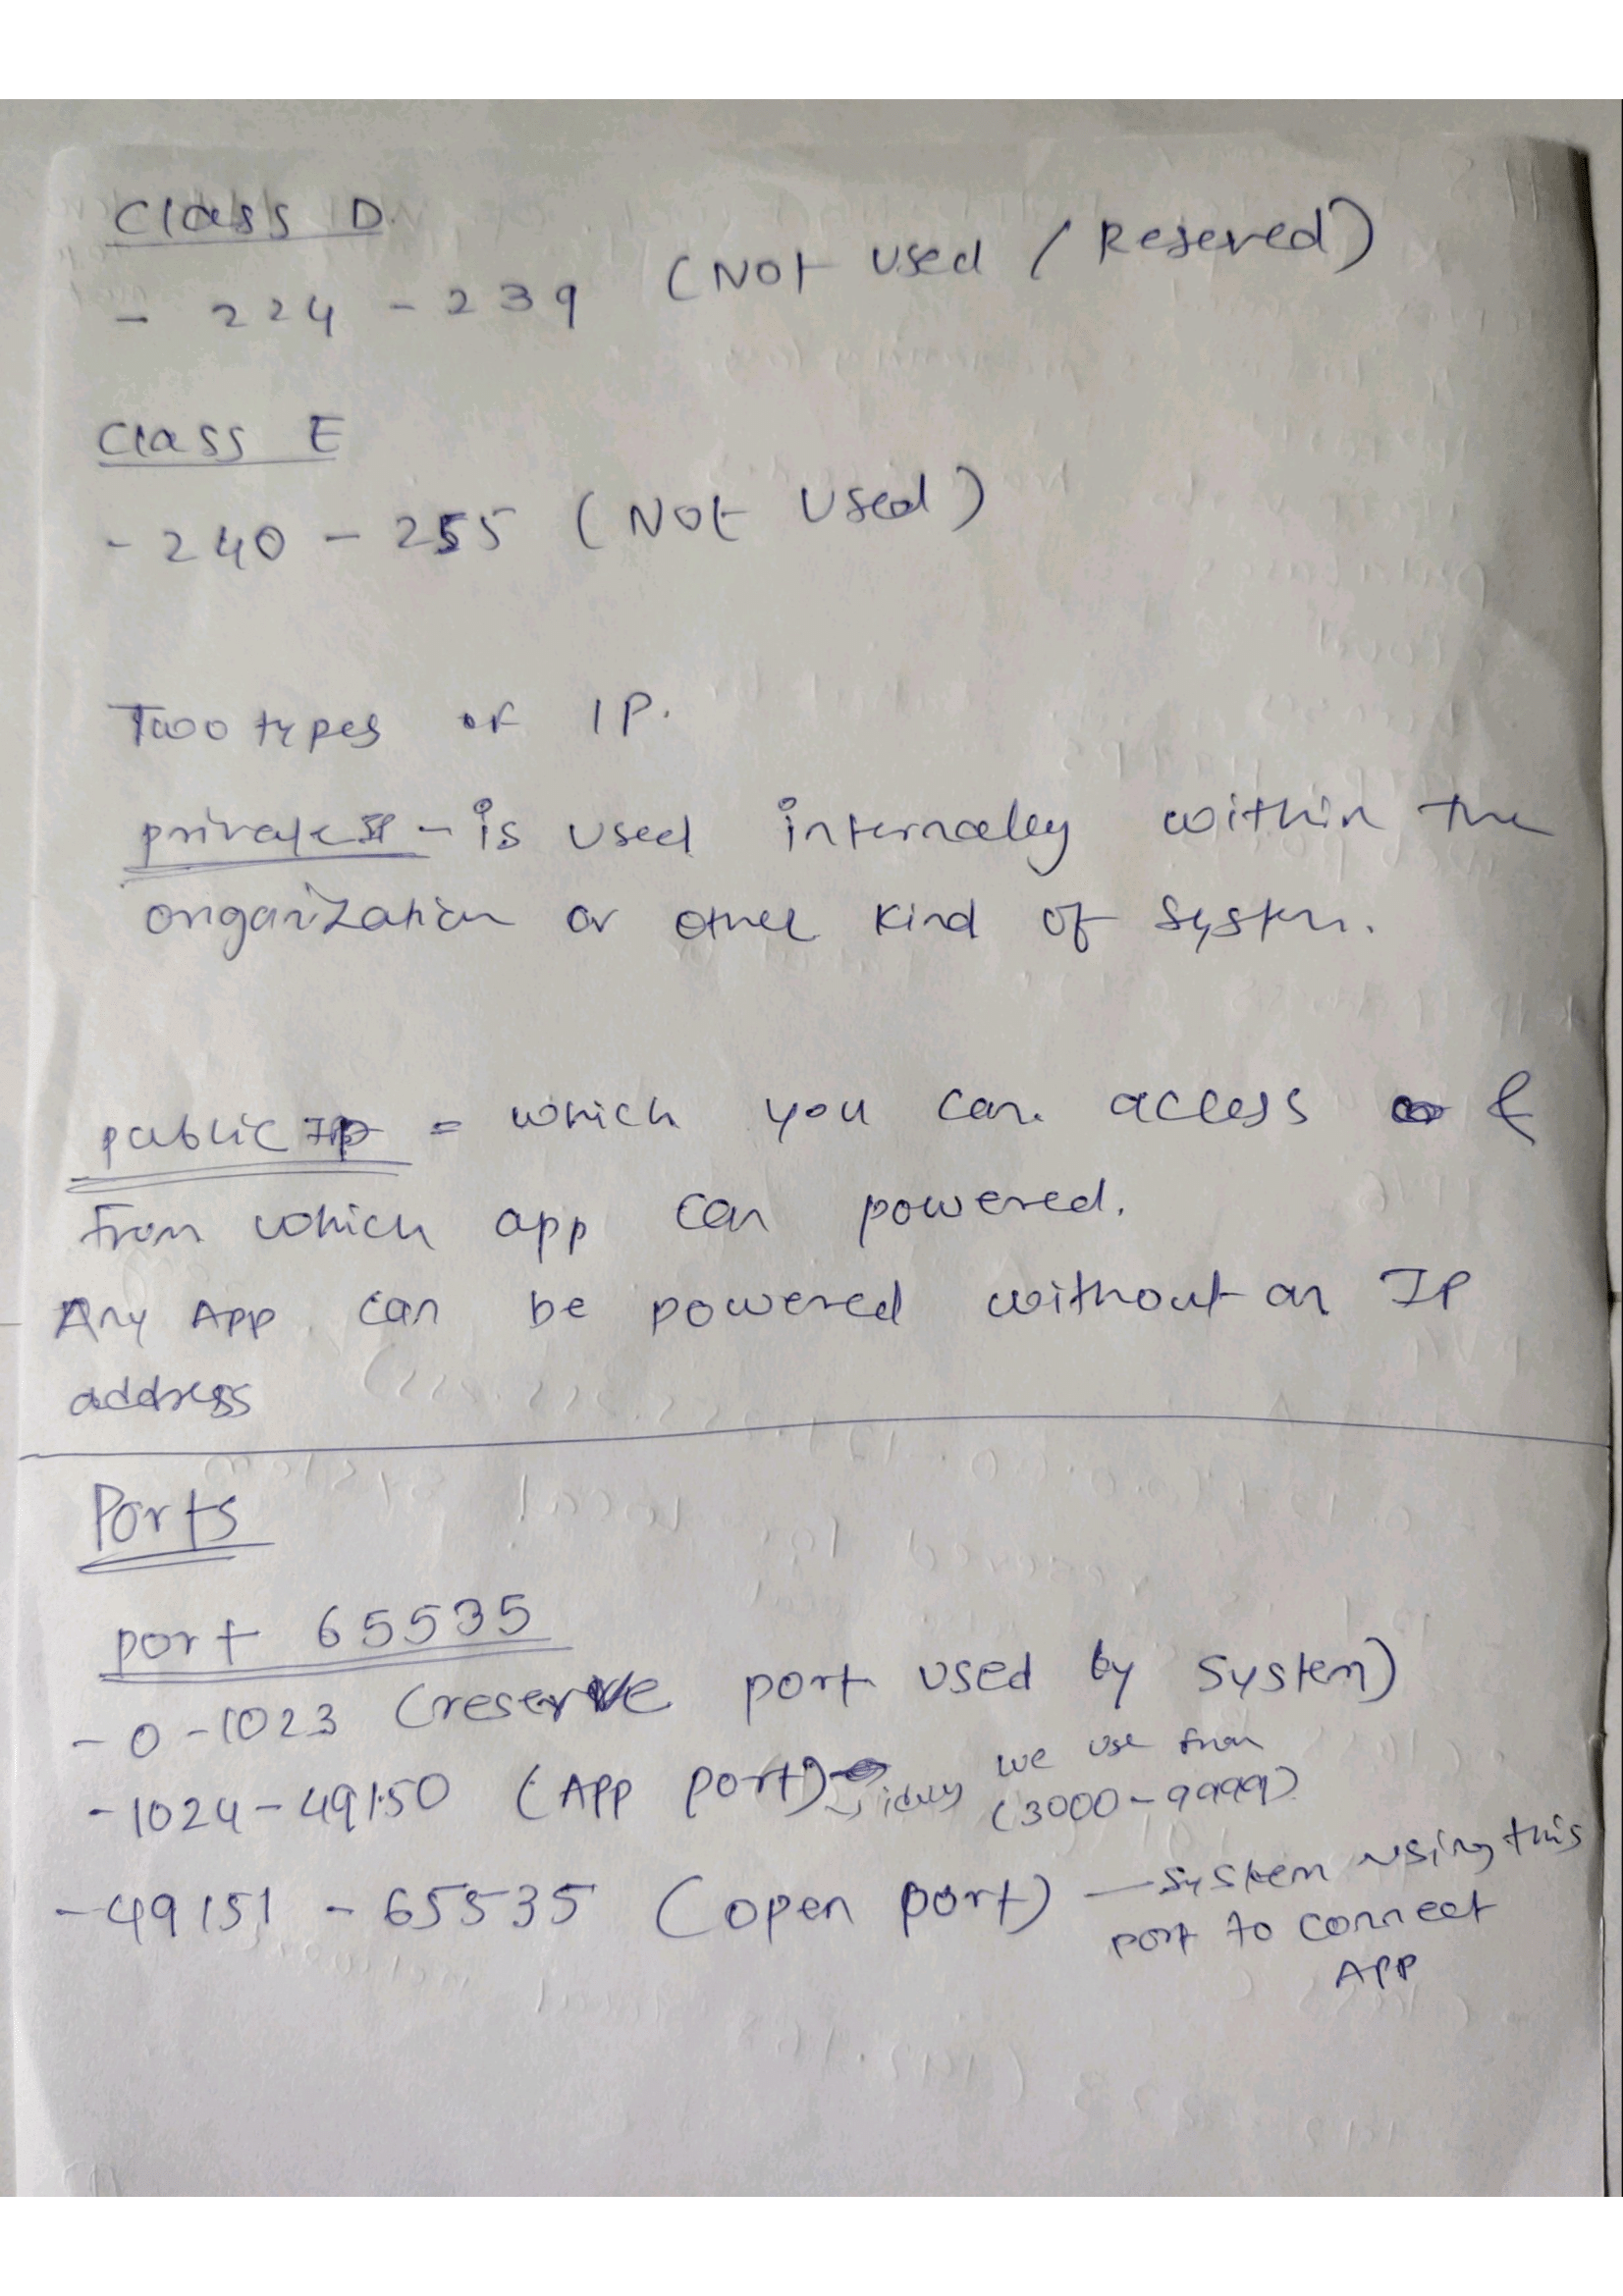 Class D.
- 224 - 239 (Not used / Reserved)
Class E
- 240 - 255 (Not Used)
Two types of IP.
private IP - is used internally within the
organization or other kind of system.
public IP = which you can access &
From which app can powered.
Any App can be powered without an IP
address
Ports
port 65535
- 0 - 1023 (reserve port used by System)
- 1024 - 49150 (App port) we use from
(3000 - 9999)
- 49151 - 65535 (open port) — system using this
port to connect
APP